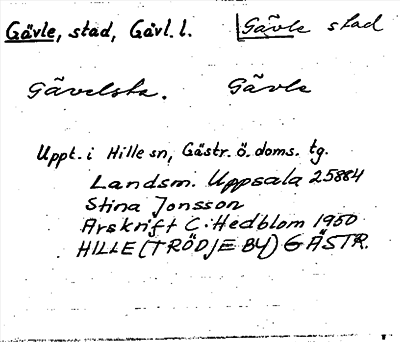 Gävle, stad, Gävl. l. Gävle stad
Gävelsta. Gävle
Uppt. i Hille sn, Gästr. ö. doms. tg.
Landsm. Uppsala 25884
Stina Jonsson
Årskrift C. Hedblom 1950
HILLE (TRÖDJE BY) GÄSTR.